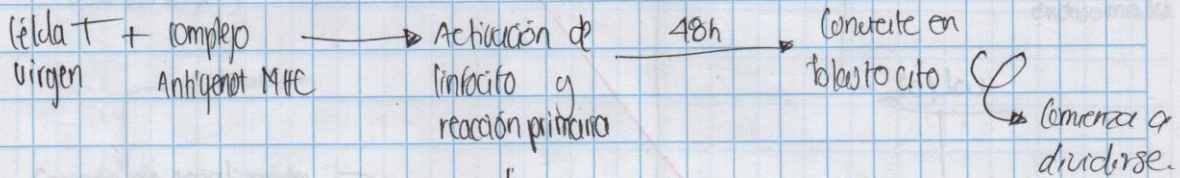 Célda T + complejo
virgen Antígenot MHC
Activación de
linfocito y
reacción primaria
48h
Convierte en
blastocito
Comienza a
dividirse.